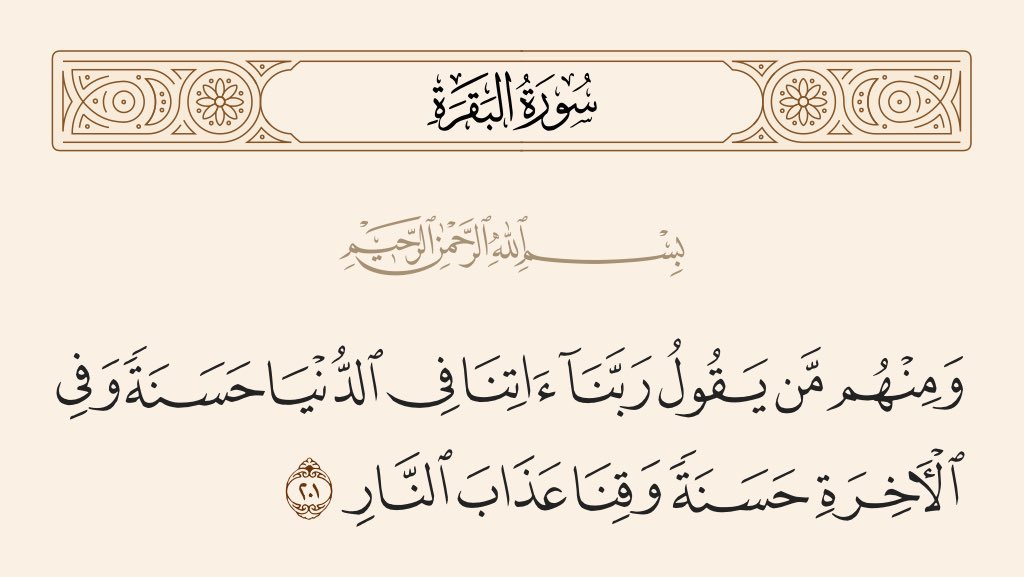 سُورَةُ البَقَرَةِ
بِسْمِ ٱللَّهِ ٱلرَّحْمَٰنِ ٱلرَّحِيمِ
وَمِنْهُم مَّن يَقُولُ رَبَّنَآ ءَاتِنَا فِى ٱلدُّنْيَا حَسَنَةً وَفِى
ٱلْأَخِرَةِ حَسَنَةً وَقِنَا عَذَابَ ٱلنَّارِ ٢٠١